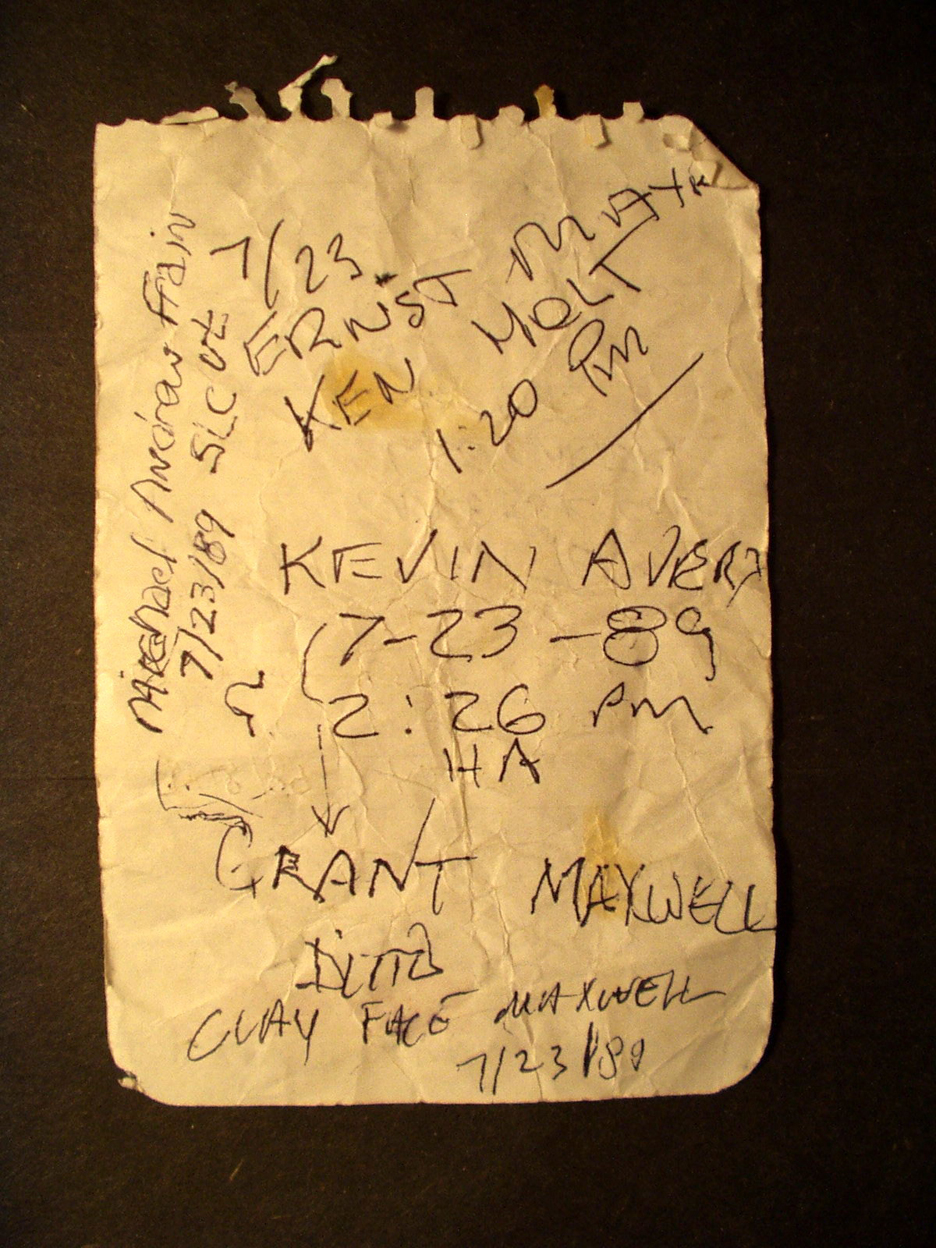 7/23
ERNST MAYR
KEN HOLT
1:20 Pm
Michael Andrew Frain
7/23/89 SLC Ut.
KEVIN AVERY
7-23-89
2:26 Pm
HA
GRANT MAXWELL
DITTO
CLAY FACE MAXWELL
7/23/89